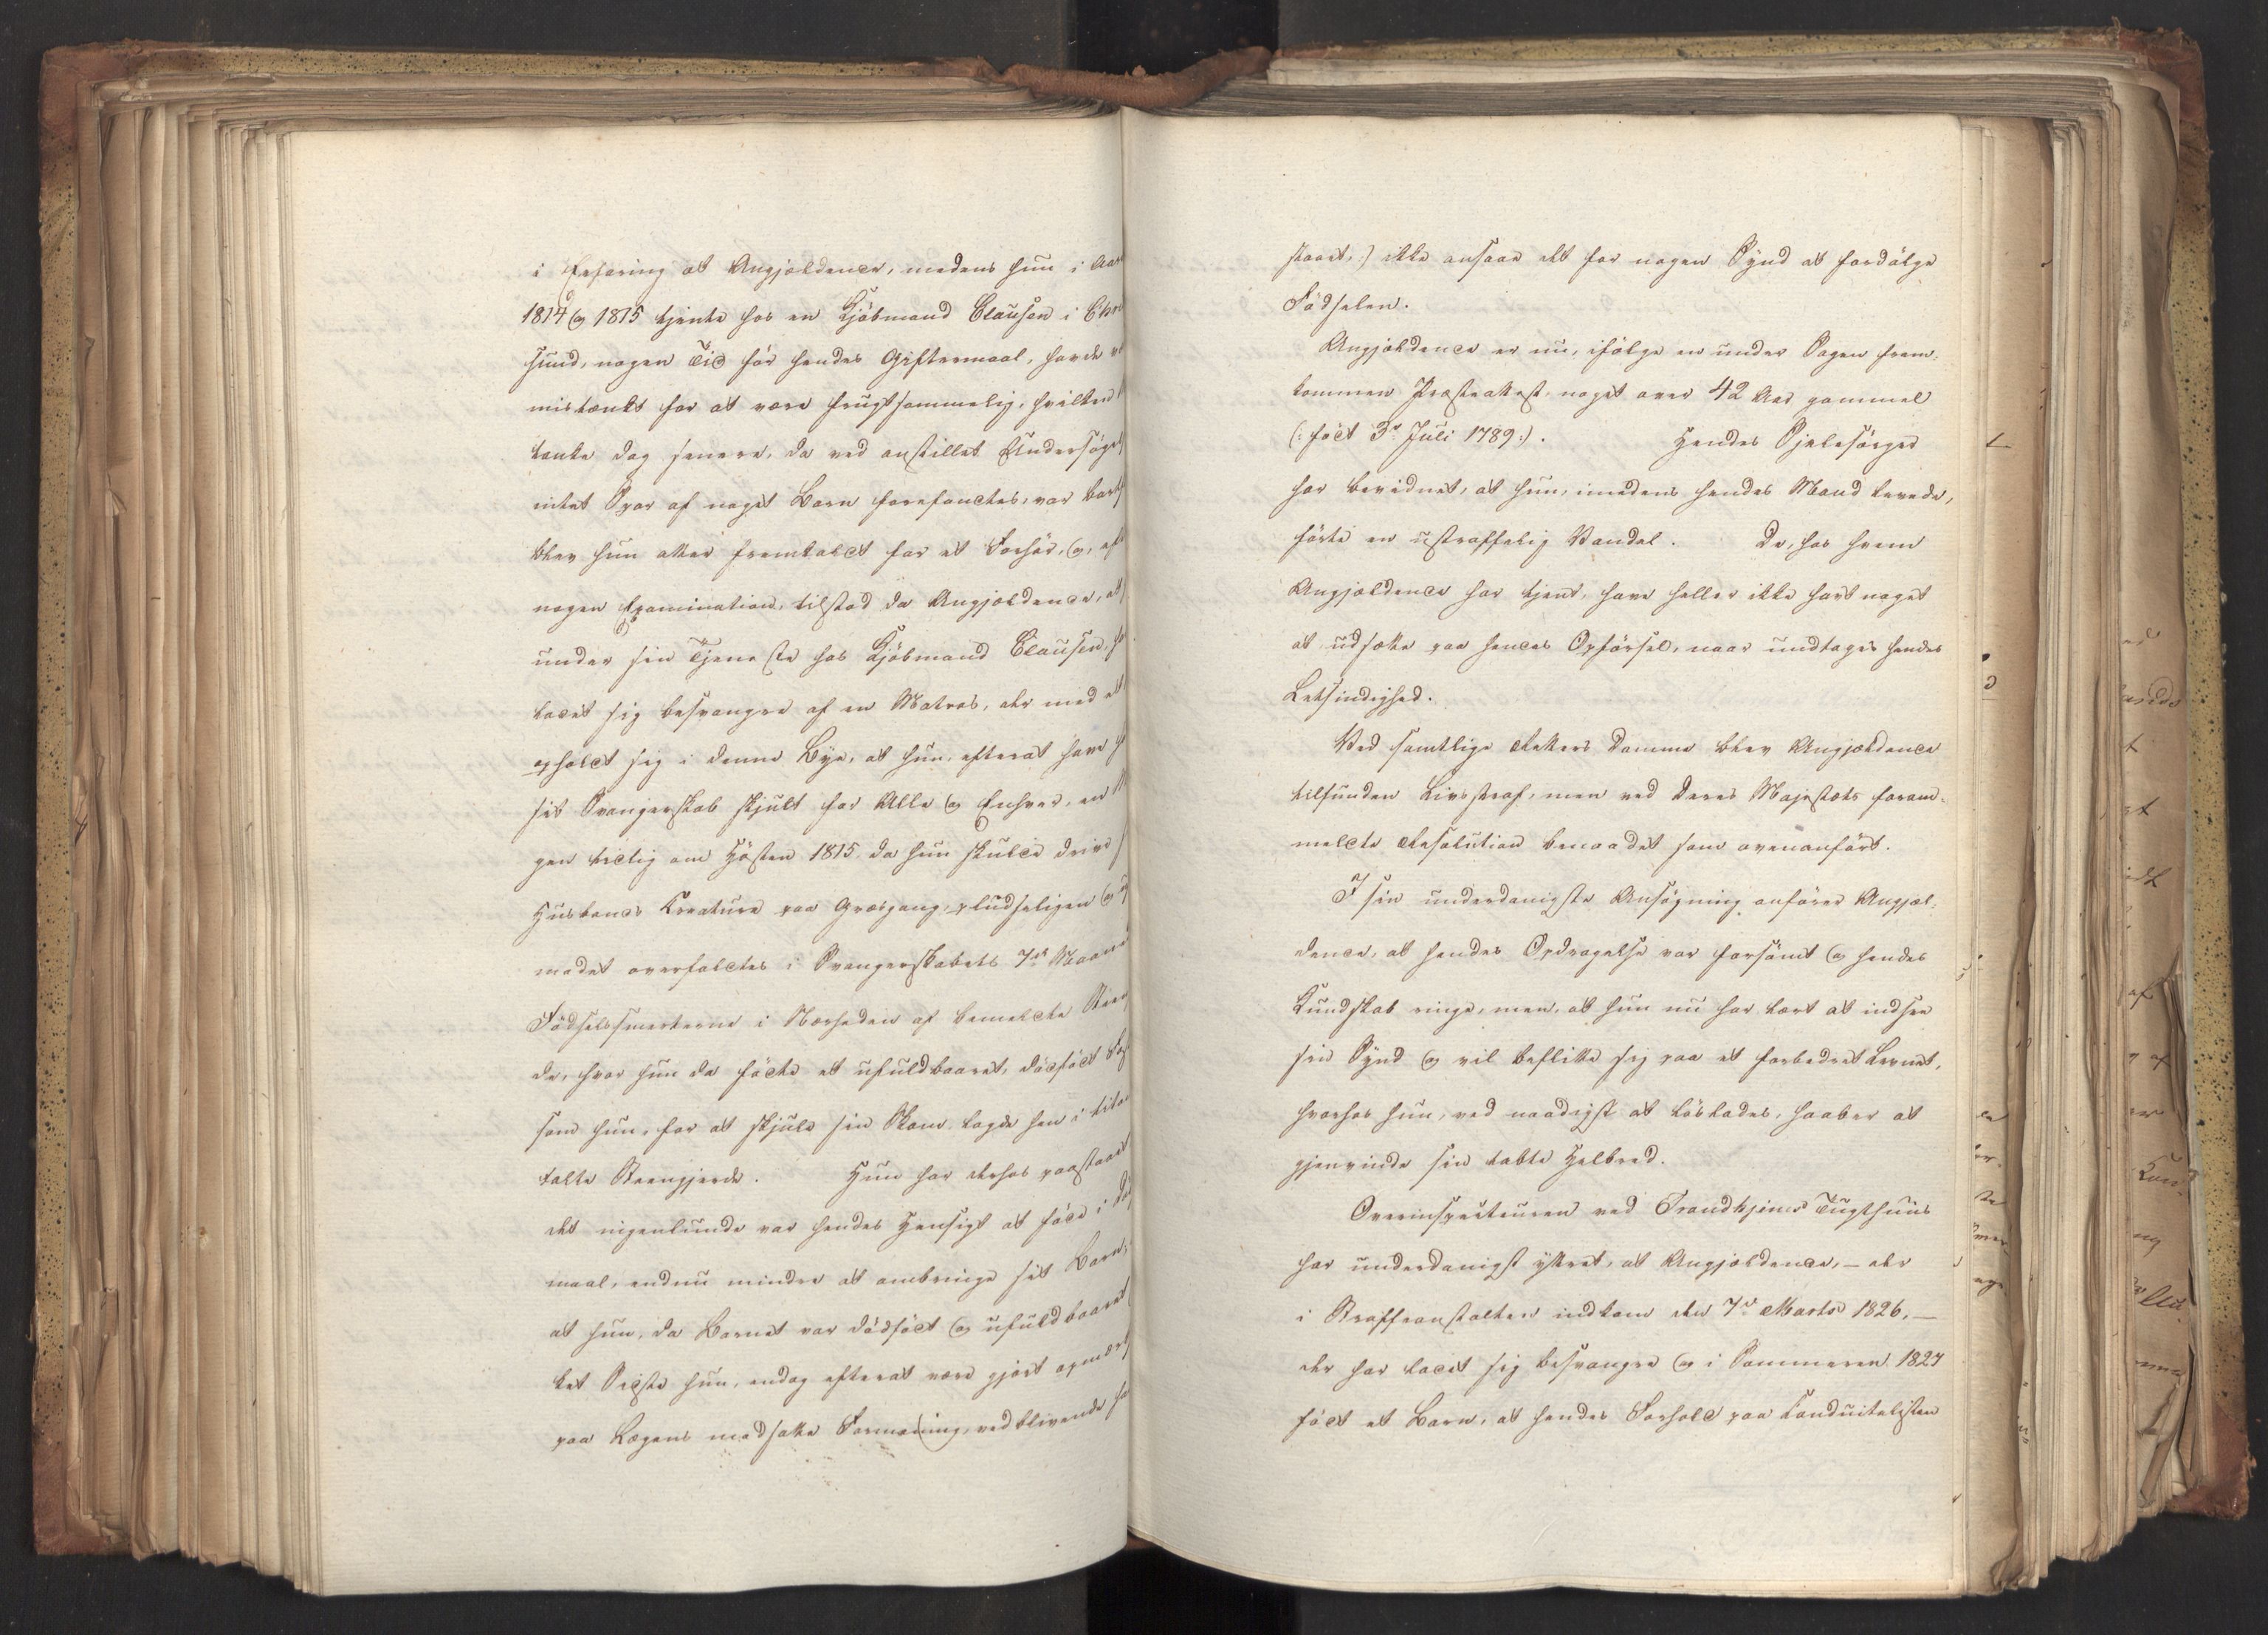 i Erfaring at Angjældende, medens hun i Aar
1814 og 1815 tjente hos en Kjöbmand Clausen i Chri
sund, nogen Tid för hendes Giftermaal, havde v
mistænkt for at være frugtsommelig, hvilken
tanke dog senere, da ved anstillet Undersöge
intet Spor af noget Barn forefandtes, var bort
blev hun atter fremkaldt for et Forhör, og, eft
nogen Examination, tilstod da Angjældende, at
under sin Tjeneste hos Kjöbmand Clausen, ha
ladet sig besvangre af en Matros, der med et
opholdt sig i denne Bye, at hun, efterat have h
sit Svangerskab skjult for Alle og Enhver, en M
gen tidlig om Hösten 1815, da hun skulde drive
Husbonds Creature paa Græsgang, pludseligen og
modet overfaldtes i Svangerskabets 7de Maaned
Födselssmerterne i Nærheden af bemeldte Steen
de, hvor hun da födte et ufuldbaaret, dödfödt Fos
som hun, for at skjule sin Skam lagde hen i tito
talte Steengjerde. Hun har derhos paastaaet
det ingenlunde var hendes Hensigt at föde i Döl
maal, endnu mindre at ombringe sit Barn,
at hun, da Barnet var dödfödt og ufuldbaaret
ket Sidste hun, endog efterat være gjort opmærk
paa Lægens modsatte Formening, vedblivende ha
staaet,:) ikke ansaae det for nogen Synd at fordölge
Födselen.
Angjældende er nu, ifölge en under Sagen frem-
kommen Præsteattest, noget over 42 Aar gammel
(: födt 3de Juli 1789:). Hendes Sjælesörger
har bevidnet, at hun, imedens hendes Mand levede,
förte en ustraffelig Vandel. De, hos hvem
Angjældende har tjent, have heller ikke havt noget
at udsætte paa hendes Opförsel, naar undtages hendes
Letsindighed.
Ved samtlige Retters Domme blev Angjældende
tilfunden Livsstraf, men ved Deres Majestæts foran-
meldte Resolution benaadet som ovenanfört.
I sin underdanigste Ansögning anförer Angjæl-
dende, at hendes Opdragelse var forsömt og hendes
Kundskab ringe, men, at hun nu har lært at indsee
sin Synd og vil beflitte sig paa et forbedret Levnet,
hvorhos hun, ved naadigst at löslades, haaber at
gjenvinde sin tabte Helbred.
Overinspecteuren ved Trondhjems Tugthuus
har underdanigst yttret, at Angjældende, – der
i Straffeanstalten indkom den 7de Marts 1826, –
der har ladet sig besvangre og i Sommeren 1827
födt et Barn, at hendes Forhold paa Conduitelisten